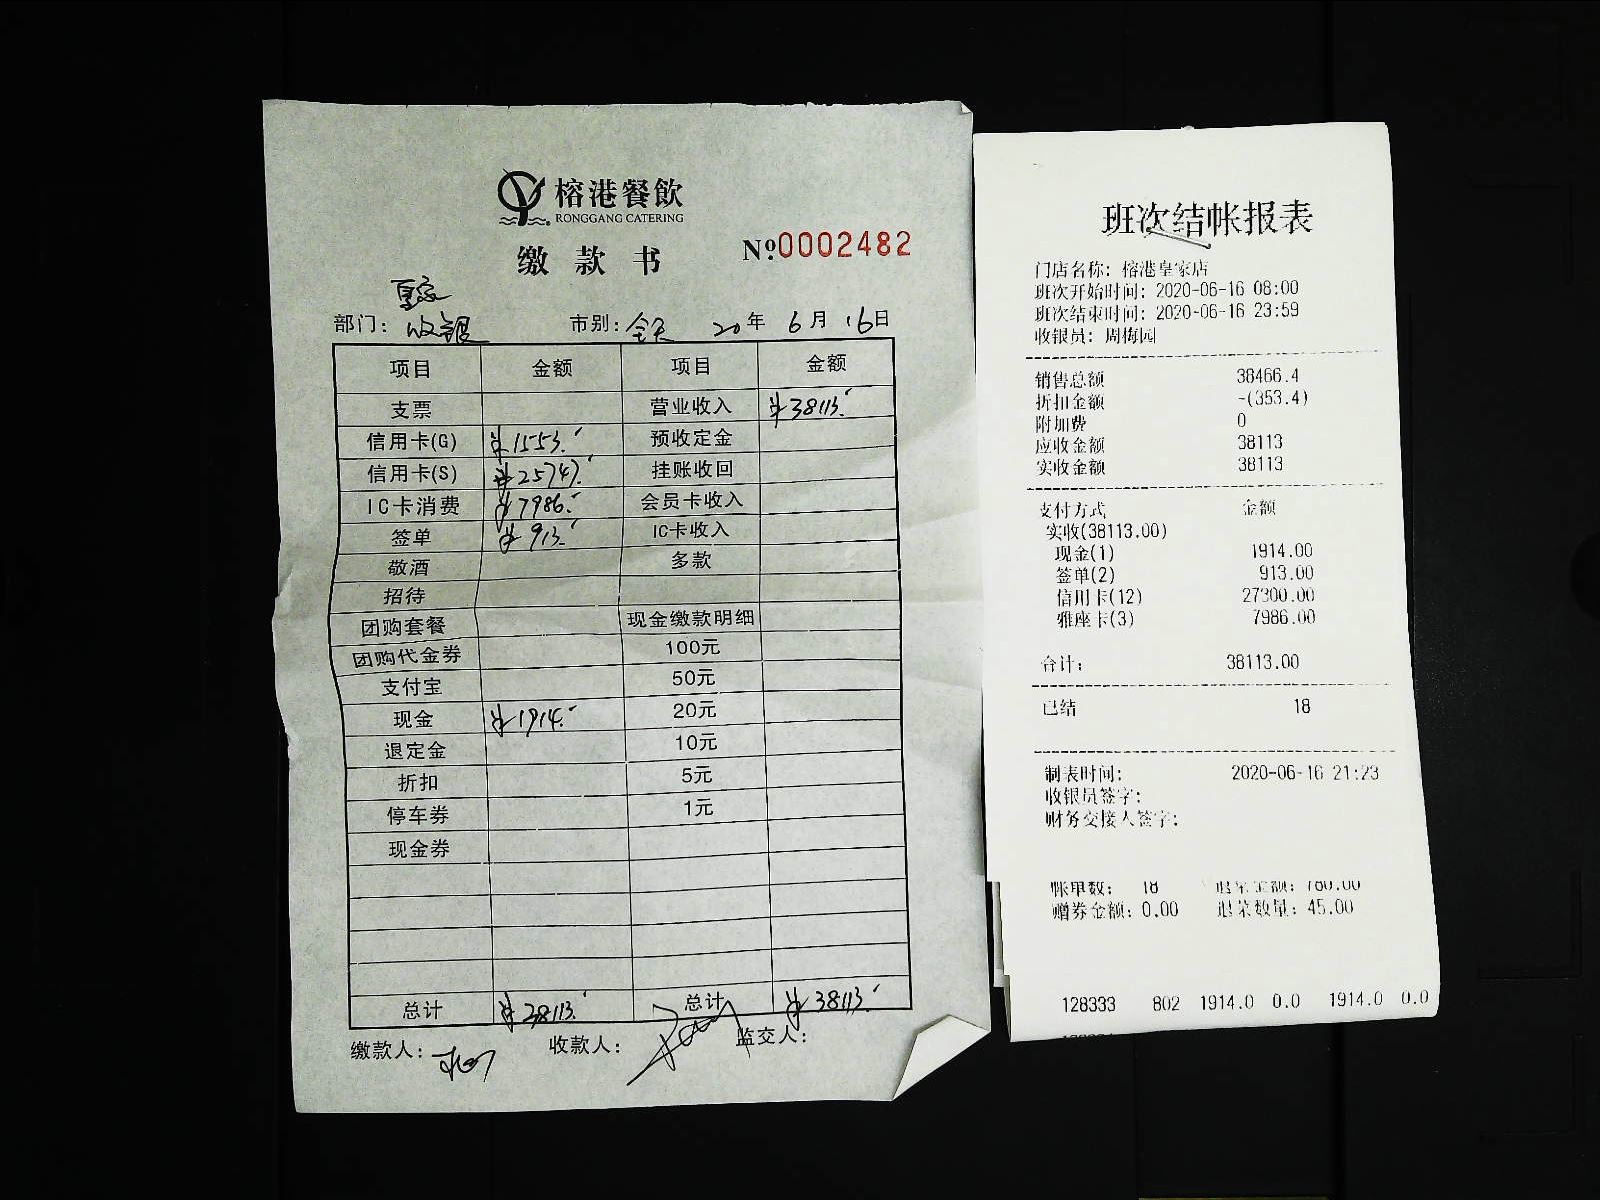 榕港餐飲
RONGGANG CATERING
缴款书
№0002482
皇家
部门：收银 市别：全天 20年6月16日
项目 金额 项目 金额
支票 营业收入 ¥38113.-
信用卡(G) ¥1553.- 预收定金
信用卡(S) ¥25747.- 挂账收回
IC卡消费 ¥7986.- 会员卡收入
签单 ¥913.- IC卡收入
敬酒 多款
招待
团购套餐 现金缴款明细
团购代金券 100元
支付宝 50元
现金 ¥1914.- 20元
退定金 10元
折扣 5元
停车券 1元
现金券
总计 ¥38113.- 总计 ¥38113.-
缴款人： 收款人： 监交人：
班次结帐报表
门店名称: 榕港皇家店
班次开始时间: 2020-06-16 08:00
班次结束时间: 2020-06-16 23:59
收银员: 周梅园
销售总额 38466.4
折扣金额 -(353.4)
附加费 0
应收金额 38113
实收金额 38113
支付方式 金额
实收(38113.00)
现金(1) 1914.00
签单(2) 913.00
信用卡(12) 27300.00
雅座卡(3) 7986.00
合计: 38113.00
已结 18
制表时间: 2020-06-16 21:23
收银员签字:
财务交接人签字:
帐单数: 18 退菜金额: 780.00
赠券金额: 0.00 退菜数量: 45.00
128333 802 1914.0 0.0 1914.0 0.0